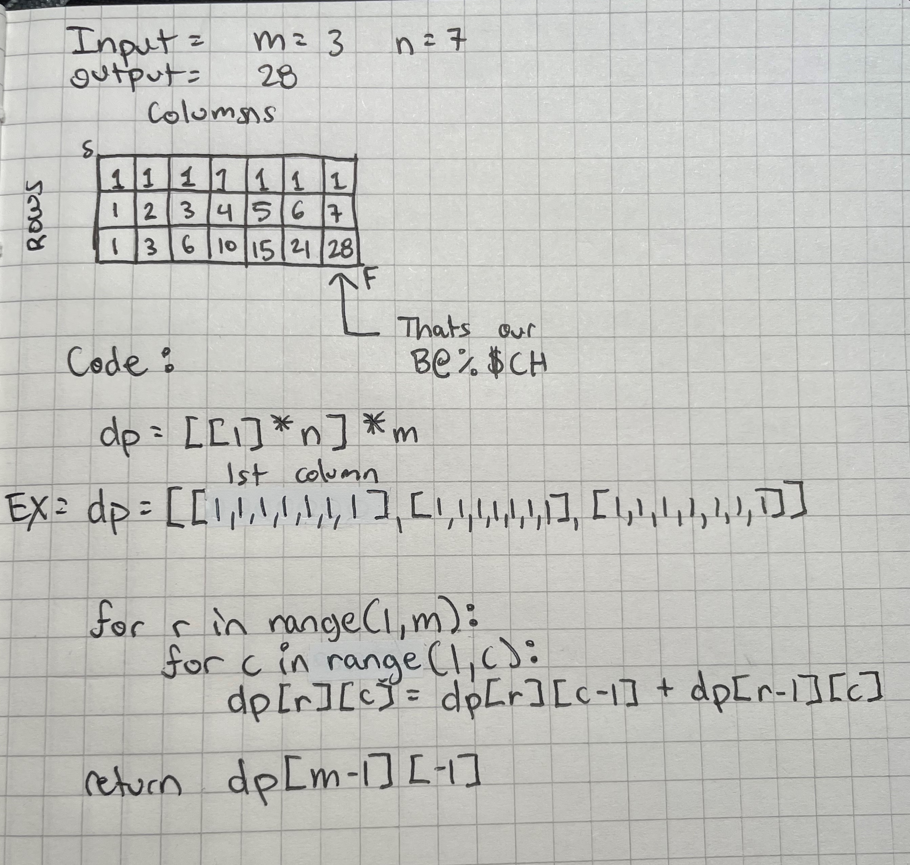 Input = m = 3 n = 7
output = 28
Columsns
S
ROWS
1 1 1 1 1 1 1
1 2 3 4 5 6 7
1 3 6 10 15 21 28
F
Thats our
B@%$CH
Code :
dp = [[1]*n]*m
1st column
EX = dp = [[1,1,1,1,1,1,1], [1,1,1,1,1,1], [1,1,1,1,1,1,1]]
for r in range(1,m):
for c in range(1,c):
dp[r][c] = dp[r][c-1] + dp[r-1][c]
return dp[m-1][-1]